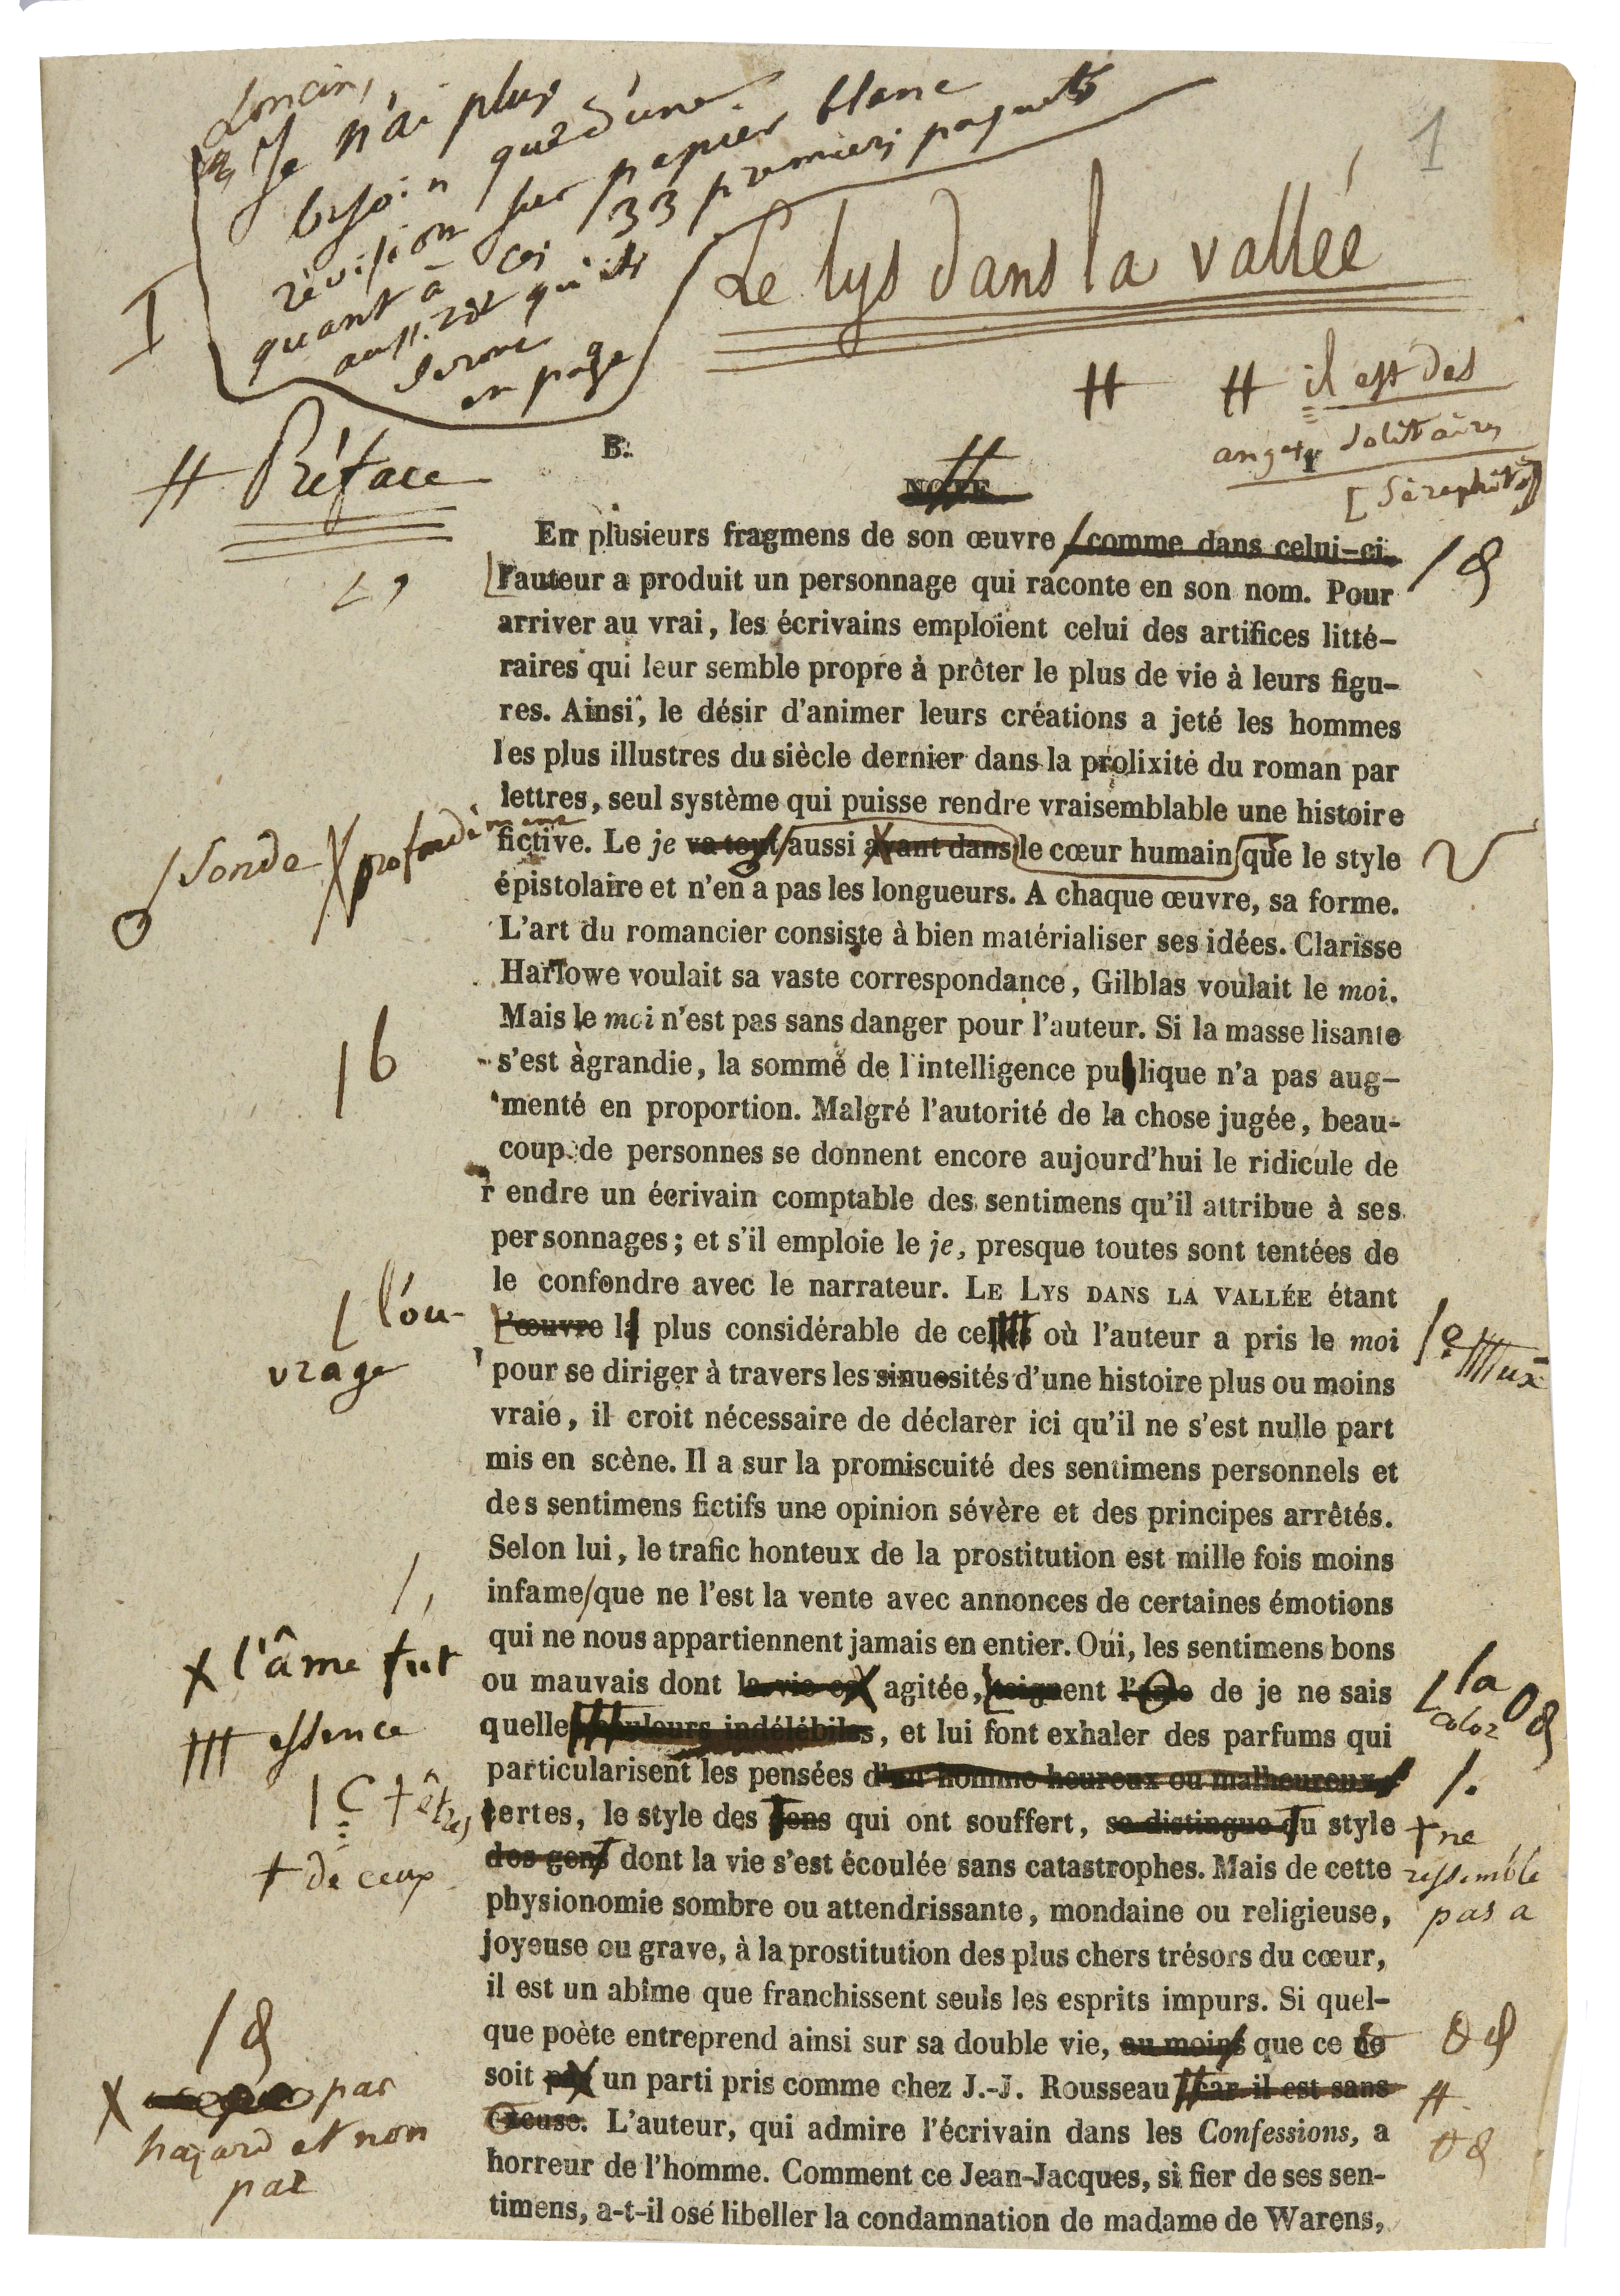 1
Je n'ai plus
besoin que d'une
révision sur papier blanc
quant à ces 33 premiers paquets
aussitôt qu'ils
seront
en page
I
Le lys dans la vallée
# # il est des
anges solitaires
[Séraphîta]
# Préface
B.
NOTE
#
En plusieurs fragmens de son œuvre comme dans celui-ci
l'auteur a produit un personnage qui raconte en son nom. Pour
arriver au vrai, les écrivains emploient celui des artifices litté-
raires qui leur semble propre à prêter le plus de vie à leurs figu-
res. Ainsi, le désir d'animer leurs créations a jeté les hommes
les plus illustres du siècle dernier dans la prolixité du roman par
lettres, seul système qui puisse rendre vraisemblable une histoire
/sonde X profondément
fictive. Le je va tout aussi avant dans le cœur humain que le style
épistolaire et n'en a pas les longueurs. A chaque œuvre, sa forme.
L'art du romancier consiste à bien matérialiser ses idées. Clarisse
Harlowe voulait sa vaste correspondance, Gilblas voulait le moi.
Mais le moi n'est pas sans danger pour l'auteur. Si la masse lisante
/b
s'est agrandie, la somme de l'intelligence pu lique n'a pas aug-
menté en proportion. Malgré l'autorité de la chose jugée, beau-
coup de personnes se donnent encore aujourd'hui le ridicule de
r endre un écrivain comptable des sentimens qu'il attribue à ses
personnages; et s'il emploie le je, presque toutes sont tentées de
le confondre avec le narrateur. LE LYS DANS LA VALLÉE étant
l'ou-
vrage
l'œuvre la plus considérable de ce où l'auteur a pris le moi
/e ux
pour se diriger à travers les sinuosités d'une histoire plus ou moins
vraie, il croit nécessaire de déclarer ici qu'il ne s'est nulle part
mis en scène. Il a sur la promiscuité des sentimens personnels et
des sentimens fictifs une opinion sévère et des principes arrêtés.
Selon lui, le trafic honteux de la prostitution est mille fois moins
/,
infame/que ne l'est la vente avec annonces de certaines émotions
qui ne nous appartiennent jamais en entier. Oui, les sentimens bons
X l'âme fut
ou mauvais dont la vie est agitée, teignent l'âme de je ne sais
la
color
essence
quelles couleurs indélébiles, et lui font exhaler des parfums qui
particularisent les pensées d'un homme heureux ou malheureux
/.
/C † êtres
ertes, le style des gens qui ont souffert, se distingue du style
† ne
ressemble
pas a
† de ceux
des gens dont la vie s'est écoulée sans catastrophes. Mais de cette
physionomie sombre ou attendrissante, mondaine ou religieuse,
joyeuse ou grave, à la prostitution des plus chers trésors du cœur,
il est un abîme que franchissent seuls les esprits impurs. Si quel-
que poète entreprend ainsi sur sa double vie, au moins que ce ne
X par
hazard et non
par
soit pas un parti pris comme chez J.-J. Rousseau car il est sans
#
excuse. L'auteur, qui admire l'écrivain dans les Confessions, a
horreur de l'homme. Comment ce Jean-Jacques, si fier de ses sen-
timens, a-t-il osé libeller la condamnation de madame de Warens,